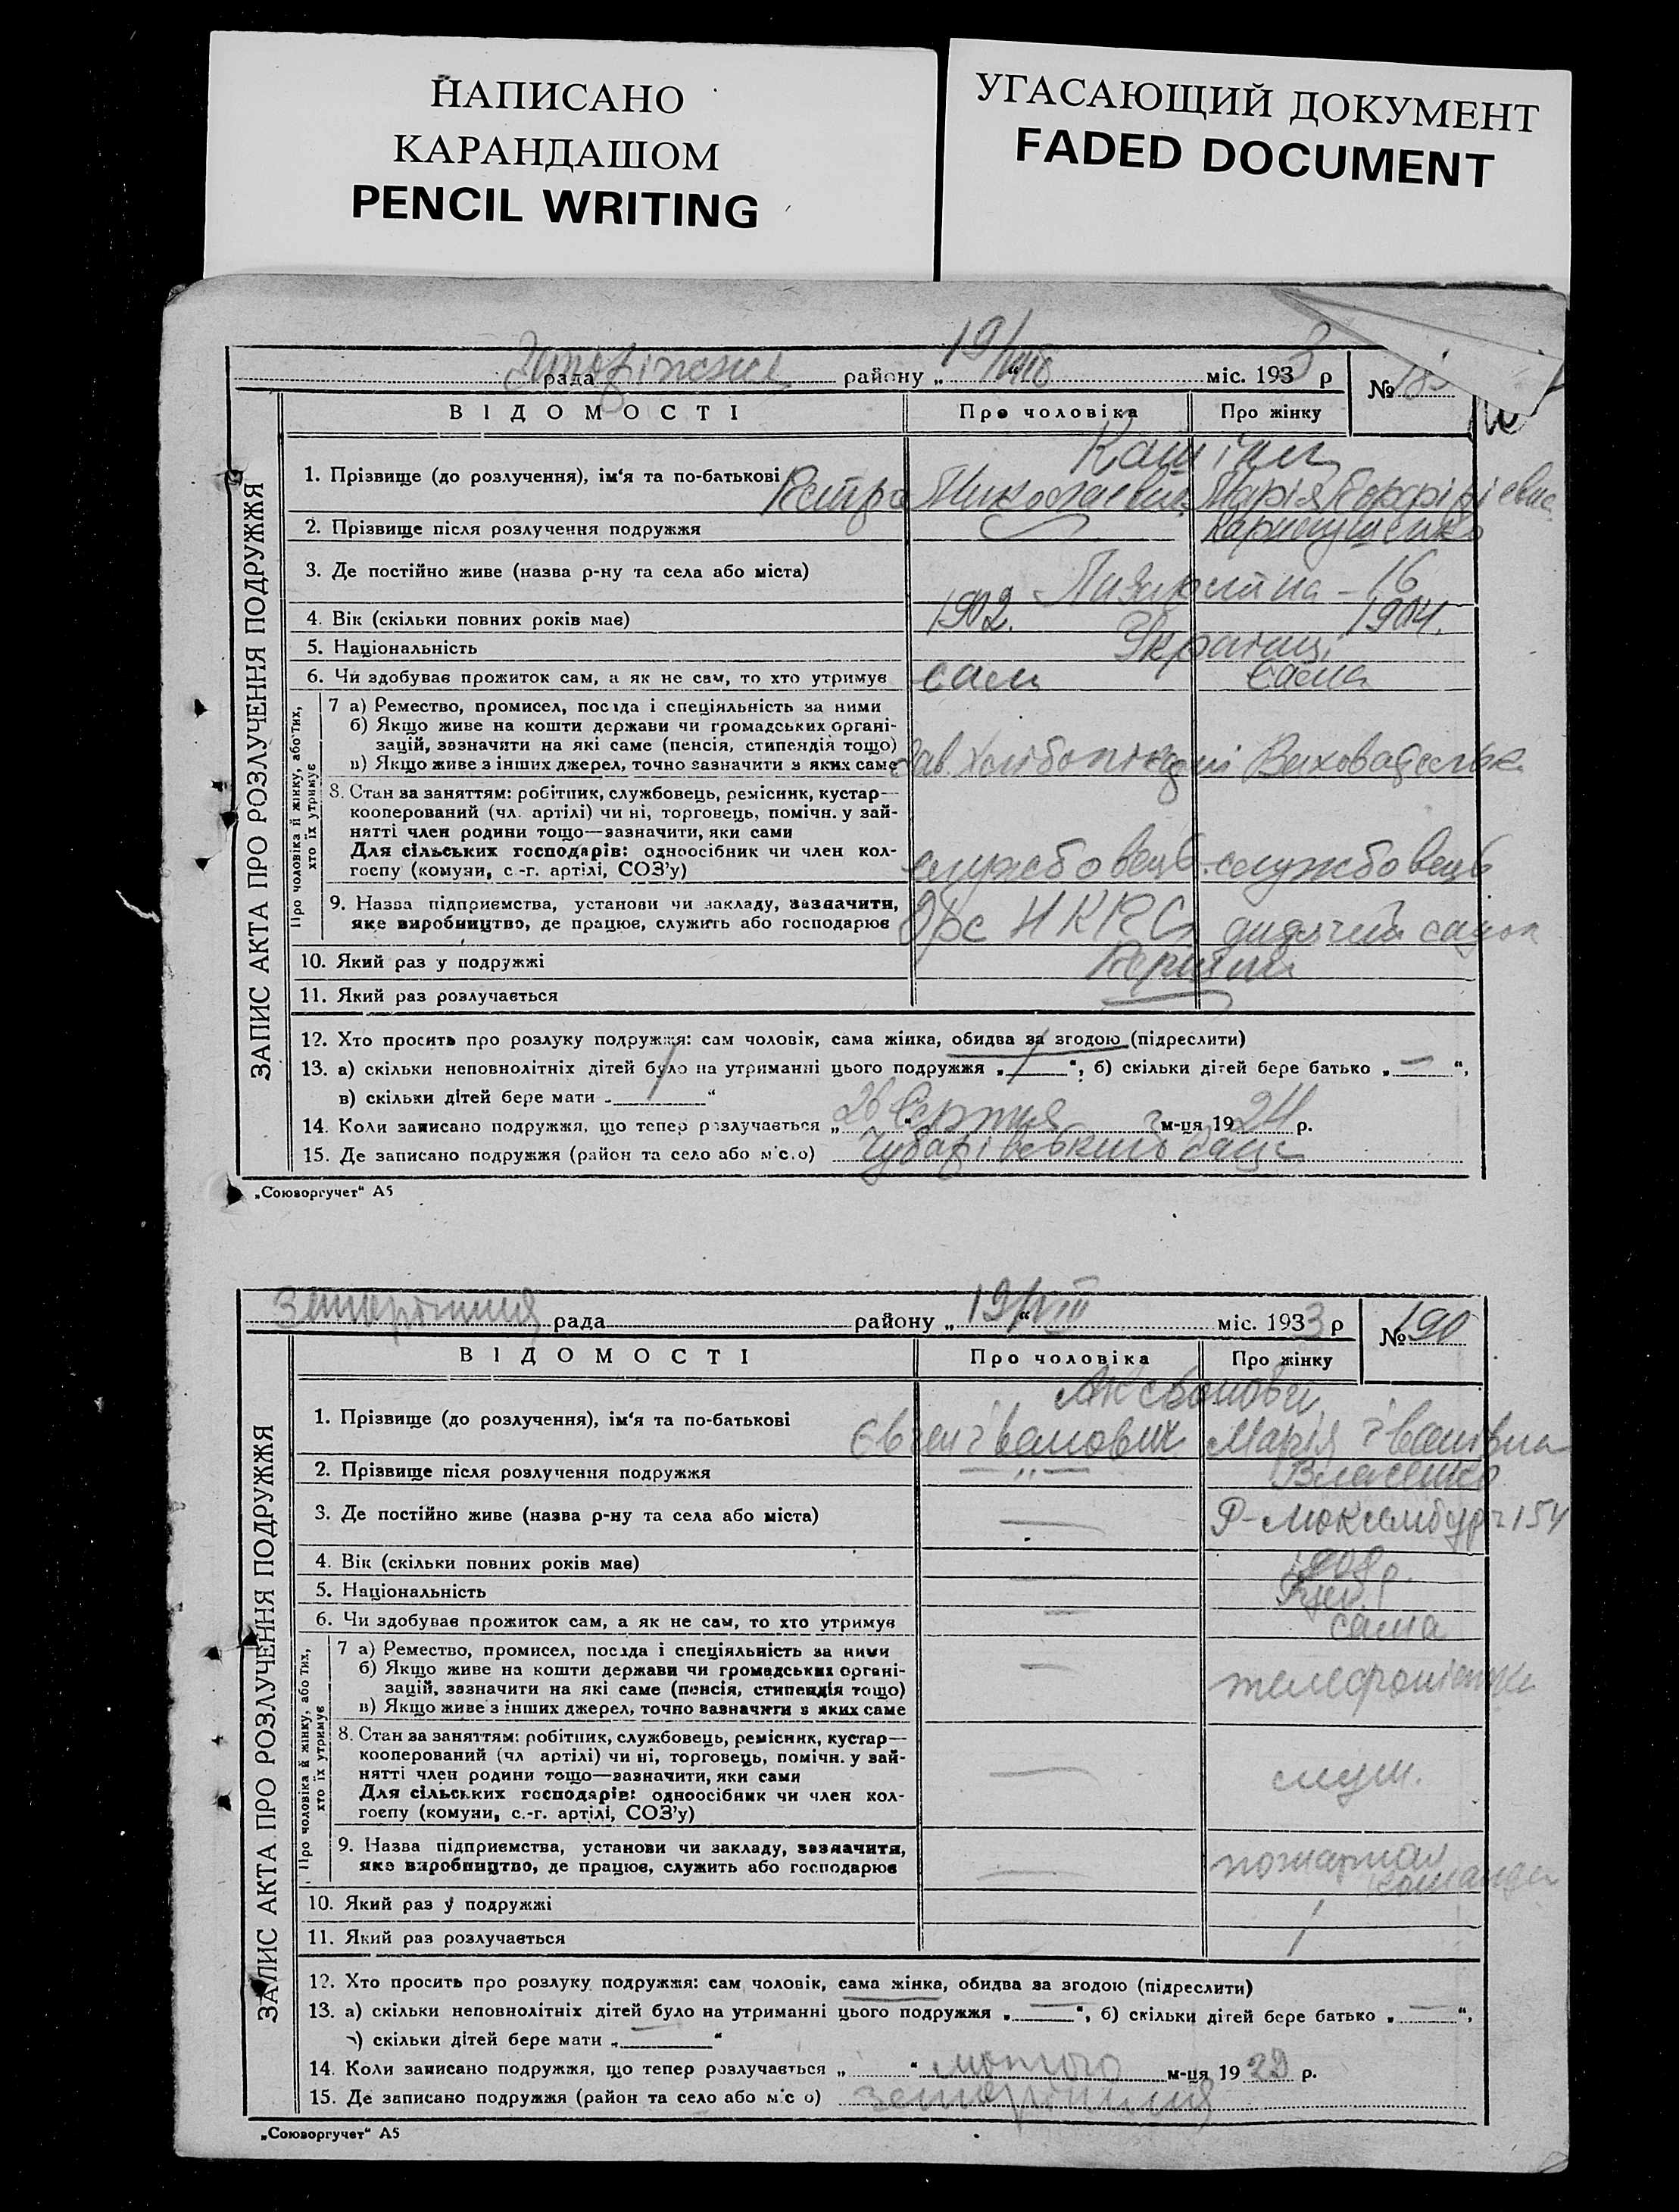 НАПИСАНО
КАРАНДАШОМ
PENCIL WRITING
УГАСАЮЩИЙ ДОКУМЕНТ
FADED DOCUMENT
ЗАПИС АКТА ПРО РОЗЛУЧЕННЯ ПОДРУЖЖЯ
рада района „ 19/VIII “ міс. 1933 р №
ВІДОМОСТІ Про чоловіка Про жінку
1. Прізвище (до розлучення), ім‘я та по-батькові Петро Николаевич Марія
2. Прізвище після розлучення подружжя
3. Де постійно живе (назва р-ну та села або міста) 16
4. Вік (скільки повних років має) 1902. 1904.
5. Національність Українці
6. Чи здобуває прожиток сам, а як не сам, то хто утримує сам сама
Про чоловіка й жінку, або тих, хто їх утримує
7 а) Ремество, промисел, посада і спеціяльність за ними
б) Якщо живе на кошти держави чи громадських органі-
зацій, зазначити на які саме (пенсія, стипендія тощо)
в) Якщо живе з інших джерел, точно зазначити з яких саме Зав. Хлібопекарні Вихователька
8. Стан за заняттям: робітник, службовець, ремісник, кустар—
кооперований (чл. артілі) чи ні, торговець, помічн. у зай-
нятті член родини тощо—зазначити, яки сами
Для сільських господарів: одноосібник чи член кол-
госпу (комуни, с.-г. артілі, СОЗ’у) службовець службовець
9. Назва підприємства, установи чи закладу, зазначити,
яке виробництво, де працює, служить або господарює дитячий садок
10. Який раз у подружжі Перший
11. Який раз розлучається
12. Хто просить про розлуку подружжя: сам чоловік, сама жінка, обидва за згодою (підреслити)
13. а) скільки неповнолітніх дітей було на утриманні цього подружжя „ 1 “, б) скільки дітей бере батько „ — “,
в) скільки дітей бере мати „ 1 “
14. Коли записано подружжя, що тепер розлучається „ 26 “ Серпня м-ця 1924 р.
15. Де записано подружжя (район та село або місто)
„Союзоргучет“ А5
ЗАПИС АКТА ПРО РОЗЛУЧЕННЯ ПОДРУЖЖЯ
рада району „ 19/VIII “ міс. 1933 р № 190
ВІДОМОСТІ Про чоловіка Про жінку
1. Прізвище (до розлучення), ім‘я та по-батькові Євген Іванович Марія Іванівна
2. Прізвище після розлучення подружжя — „ — Власенко
3. Де постійно живе (назва р-ну та села або міста) — Р-Люксембург 154
4. Вік (скільки повних років має) — 1908 р.
5. Національність —
6. Чи здобуває прожиток сам, а як не сам, то хто утримує — сама
Про чоловіка й жінку, або тих, хто їх утримує
7 а) Ремество, промисел, посада і спеціяльність за ними
б) Якщо живе на кошти держави чи громадських органі-
зацій, зазначити на які саме (пенсія, стипендія тощо)
в) Якщо живе з інших джерел, точно зазначити з яких саме — телефоністка
8. Стан за заняттям: робітник, службовець, ремісник, кустар—
кооперований (чл артілі) чи ні, торговець, помічн. у зай-
нятті член родини тощо—зазначити, яки сами
Для сільських господарів: одноосібник чи член кол-
госпу (комуни, с.-г. артілі, СОЗ’у) — служ.
9. Назва підприємства, установи чи закладу, зазначити,
яке виробництво, де працює, служить або господарює — пожарная команда
10. Який раз у подружжі 1
11. Який раз розлучається 1
12. Хто просить про розлуку подружжя: сам чоловік, сама жінка, обидва за згодою (підреслити)
13. а) скільки неповнолітніх дітей було на утриманні цього подружжя „ — “, б) скільки дітей бере батько „ — “,
в) скільки дітей бере мати „ — “
14. Коли записано подружжя, що тепер розлучається „ “ лютого м-ця 1929 р.
15. Де записано подружжя (район та село або місто)
„Союзоргучет“ А5